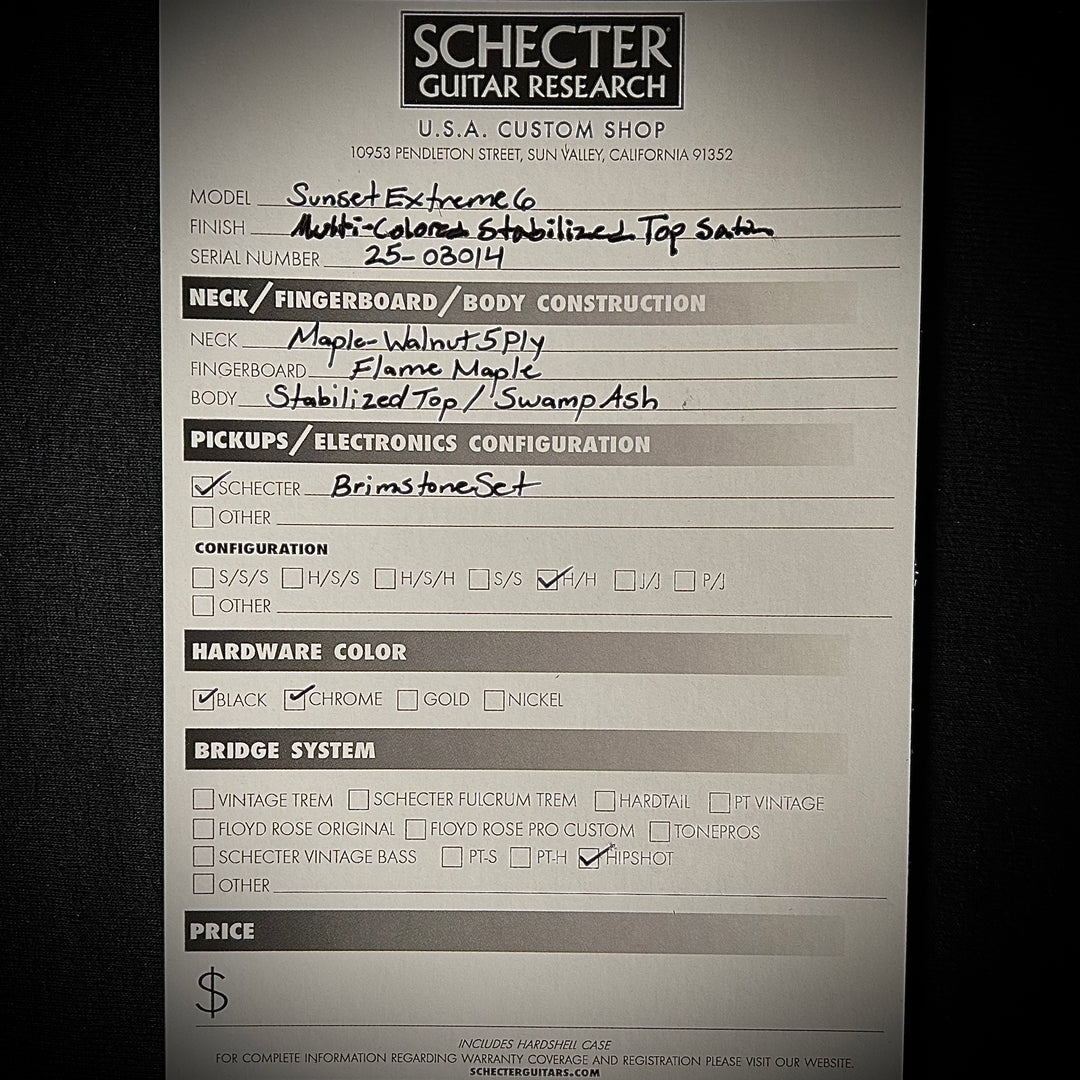 SCHECTER
GUITAR RESEARCH
U.S.A. CUSTOM SHOP
10953 PENDLETON STREET, SUN VALLEY, CALIFORNIA 91352
MODEL Sunset Extreme 6
FINISH Multi-Colored Stabilized Top Satin
SERIAL NUMBER 25-03014
NECK/FINGERBOARD/BODY CONSTRUCTION
NECK Maple-Walnut 5 Ply
FINGERBOARD Flame Maple
BODY Stabilized Top / Swamp Ash
PICKUPS/ELECTRONICS CONFIGURATION
SCHECTER Brimstone Set
OTHER
CONFIGURATION
S/S/S H/S/S H/S/H S/S H/H J/J P/J
OTHER
HARDWARE COLOR
BLACK CHROME GOLD NICKEL
BRIDGE SYSTEM
VINTAGE TREM SCHECTER FULCRUM TREM HARDTAIL PT VINTAGE
FLOYD ROSE ORIGINAL FLOYD ROSE PRO CUSTOM TONEPROS
SCHECTER VINTAGE BASS PT-S PT-H HIPSHOT
OTHER
PRICE
$
INCLUDES HARDSHELL CASE
FOR COMPLETE INFORMATION REGARDING WARRANTY COVERAGE AND REGISTRATION PLEASE VISIT OUR WEBSITE.
SCHECTERGUITARS.COM